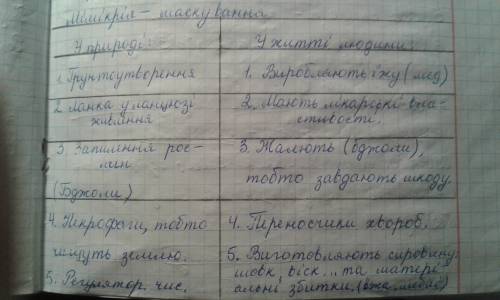 Мімікрія – маскування
У природі:
У житті людини:
1. Грунтоутворення
1. Виробляють їжу (мед)
2. Ланка у ланцюзі
живлення
2. Мають лікарські вла-
стивости.
3. Запилення рос-
лин
(Бджоли)
3. Жалють (бджоли),
тобто завдають шкоду.
4. Некрофаги, тобто
землю.
5. Регулятор. чис.
4. Переносчики хвороб.
5. Виготовляють сировину:
шовк, віск... та матері-
альні збитки.